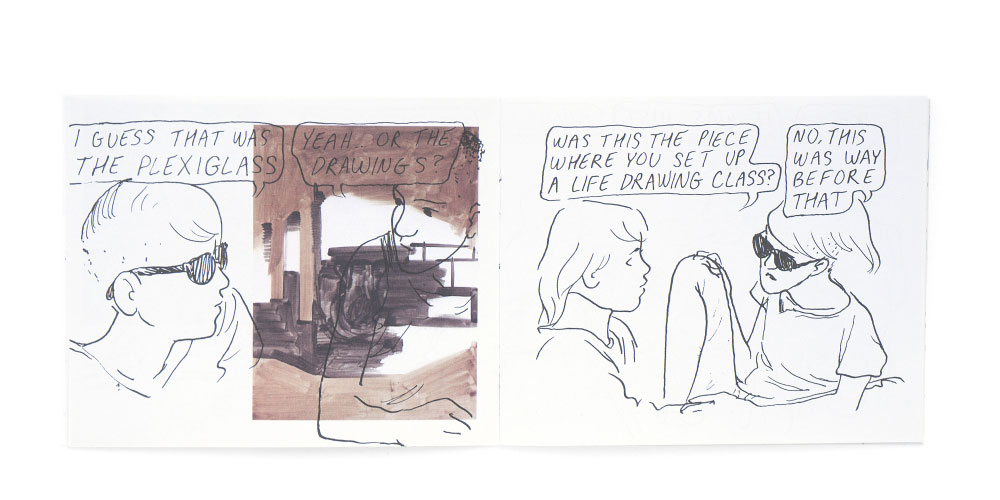 I GUESS THAT WAS
THE PLEXIGLASS
YEAH.. OR THE
DRAWINGS?
WAS THIS THE PIECE
WHERE YOU SET UP
A LIFE DRAWING CLASS?
NO, THIS
WAS WAY
BEFORE
THAT